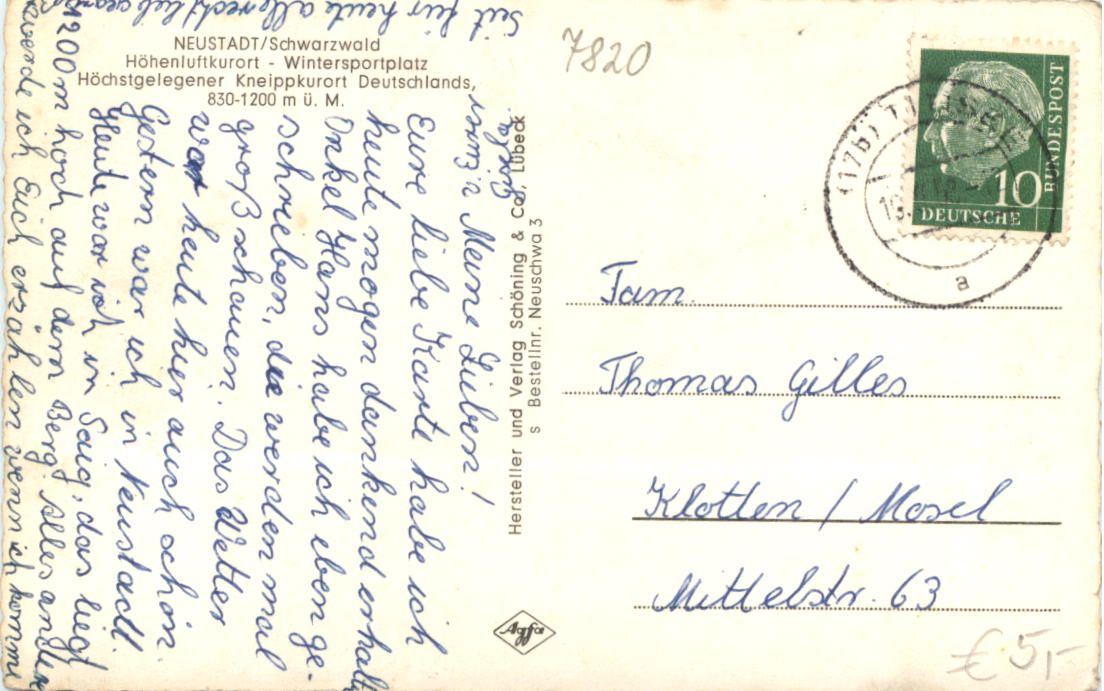 NEUSTADT/Schwarzwald
Höhenluftkurort - Wintersportplatz
Höchstgelegener Kneippkurort Deutschlands,
830-1200 m ü. M.
Meine Lieben!
Eure liebe Karte habe ich
heute morgen dankend erhalt
Onkel Hans habe ich eben ge-
schrieben, die werden mal
groß schauen. Das Wetter
war heute hier auch schön.
Gestern war ich in Neustadt.
Heute war ich in Saig, das liegt
1200 m hoch auf dem Berg. Alles andere
werde ich Euch erzählen wenn ich komme
Seit für heute alle recht lieb
Hersteller und Verlag Schöning & Co., Lübeck
s Bestellnr. Neuschwa 3
Agfa
7820
DEUTSCHE
BUNDESPOST
10
(17b)
a
Fam.
Thomas Gilles
Klotten / Mosel
Mittelstr. 63
€ 5,-